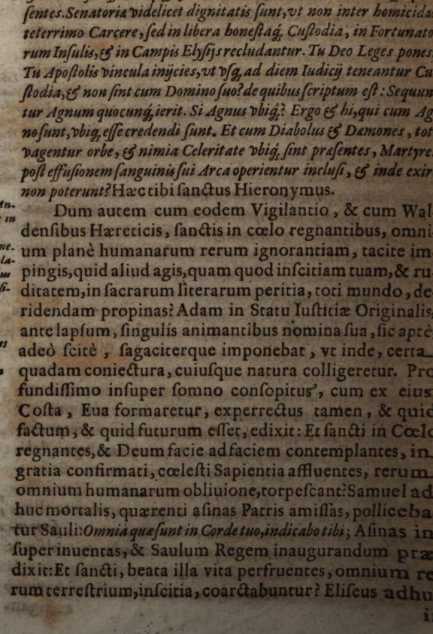 sentes. Senatoriæ videlicet dignitatis sunt, vt non inter homicidas
teterrimo Carcere, sed in libera honestaq́; Custodia, in Fortunato
rum Insulis, & in Campis Elysijs recludantur. Tu Deo Leges pones
Tu Apostolis vincula inijcies, vt vsq́; ad diem Iudicij teneantur Cu
stodia, & non sint cum Domino suo? de quibus scriptum est: Sequun
tur Agnum quocunq́; ierit. Si Agnus vbiq́;? Ergo & hi, qui cum Ag
no sunt, vbiq́; esse credendi sunt. Et cum Diabolus & Dæmones, tot
vagentur orbe, & nimia Celeritate vbiq́; sint præsentes, Martyre
post effusionem sanguinis sui Arca operientur inclusi, & inde exir
non poterunt? Hæc tibi sanctus Hieronymus.
Dum autem cum eodem Vigilantio, & cum Wal
densibus Hæreticis, sanctis in cœlo regnantibus, omni
um planè humanarum rerum ignorantiam, tacite im
pingis, quid aliud agis, quam quod inscitiam tuam, & ru
ditatem, in sacrarum literarum peritia, toti mundo, de
ridendam propinas? Adam in Statu Iustitiæ Originalis
ante lapsum, singulis animantibus nomina sua, sic aptè
adeò scitè, sagaciterque imponebat, vt inde, certa
quadam coniectura, cuiusque natura colligeretur. Pro
fundissimo insuper somno consopitus, cum ex eius
Costa, Eua formaretur, experrectus tamen, & quid
factum, & quid futurum esset, edixit: Et sancti in Cœlo
regnantes, & Deum facie ad faciem contemplantes, in
gratia confirmati, cœlesti Sapientia affluentes, rerum
omnium humanarum obliuione, torpescant? Samuel ad
huc mortalis, quærenti asinas Patris amissas, polliceba
tur Sauli: Omnia quæ sunt in Corde tuo, indicabo tibi; Asinas in
super inuentas, & Saulum Regem inaugurandum præ
dixit: Et sancti, beata illa vita perfruentes, omnium re
rum terrestrium, inscitia, coarctabuntur? Eliseus adhu